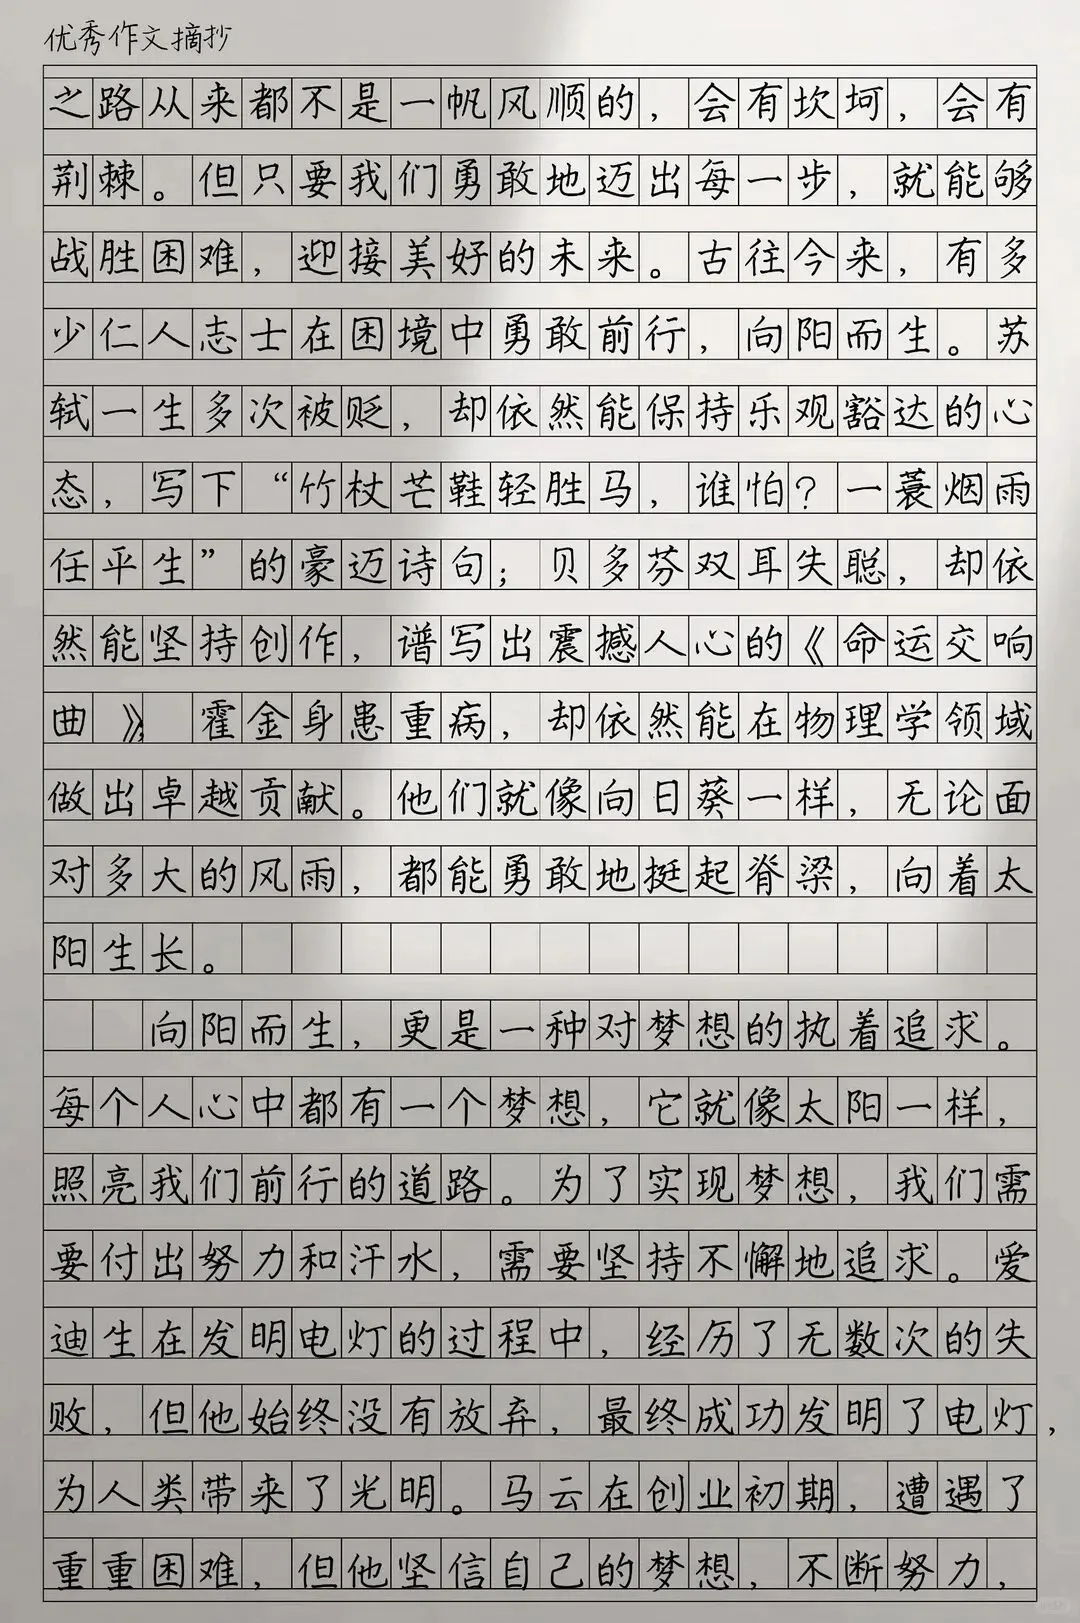 优秀作文摘抄
之路从来都不是一帆风顺的，会有坎坷，会有
荆棘。但只要我们勇敢地迈出每一步，就能够
战胜困难，迎接美好的未来。古往今来，有多
少仁人志士在困境中勇敢前行，向阳而生。苏
轼一生多次被贬，却依然能保持乐观豁达的心
态，写下“竹杖芒鞋轻胜马，谁怕？一蓑烟雨
任平生”的豪迈诗句；贝多芬双耳失聪，却依
然能坚持创作，谱写出震撼人心的《命运交响
曲》；霍金身患重病，却依然能在物理学领域
做出卓越贡献。他们就像向日葵一样，无论面
对多大的风雨，都能勇敢地挺起脊梁，向着太
阳生长。
向阳而生，更是一种对梦想的执着追求。
每个人心中都有一个梦想，它就像太阳一样，
照亮我们前行的道路。为了实现梦想，我们需
要付出努力和汗水，需要坚持不懈地追求。爱
迪生在发明电灯的过程中，经历了无数次的失
败，但他始终没有放弃，最终成功发明了电灯，
为人类带来了光明。马云在创业初期，遭遇了
重重困难，但他坚信自己的梦想，不断努力，